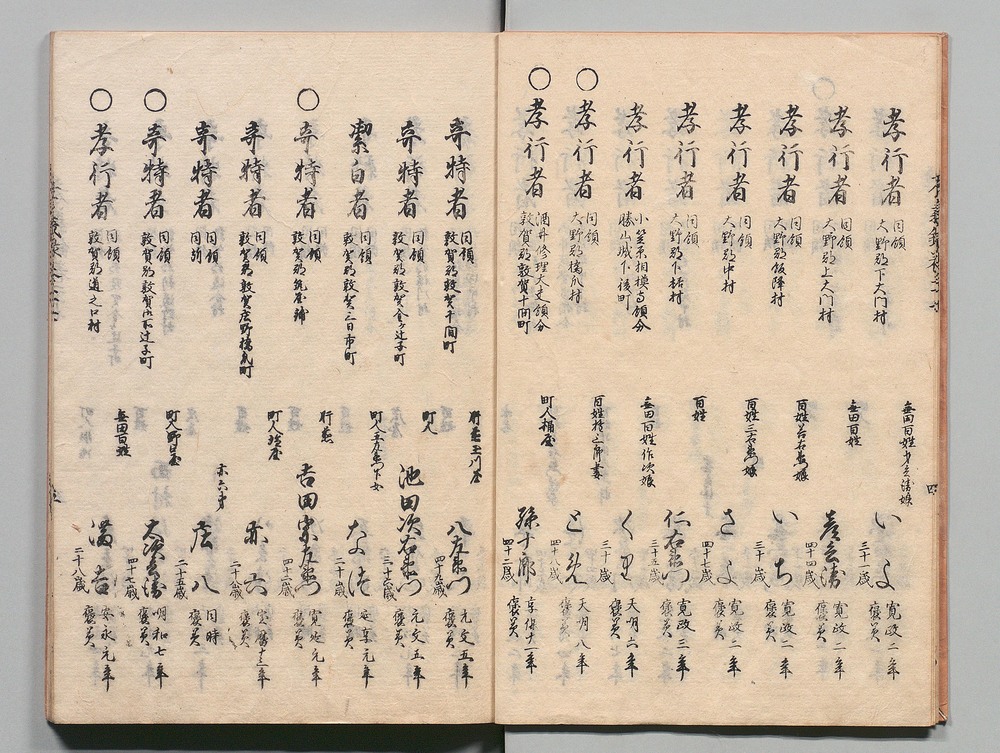 孝行者 同領 大野郡下大門村 無田百姓 娘 いよ 三十一歳 寛政二年 褒美
孝行者 同領 大野郡上大門村 無田百姓 彦兵衛 四十四歳 寛政二年 褒美
孝行者 同領 大野郡飯降村 百姓 娘 いち 三十歳 寛政二年 褒美
孝行者 同領 大野郡中村 百姓 娘 さよ 四十七歳 寛政二年 褒美
孝行者 同領 大野郡下 村 百姓 仁右衛門 三十五歳 寛政三年 褒美
孝行者 小笠原相模守領分 勝山城下後町 無田百姓作次娘 くり 三十歳 天明六年 褒美
〇 孝行者 同領 大野郡橋爪村 百姓 妻 とめ 四十八歳 天明八年 褒美
〇 孝行者 酒井修理大夫領分 敦賀郡敦賀十間町 町人桶屋 孫十郎 四十二歳 享保十一年 褒美
奇特者 同領 敦賀郡敦賀十間町 肝煎玉川屋 八左衛門 四十九歳 元文五年 褒美
奇特者 同領 敦賀郡敦賀金ヶ辻子町 町人 池田次右衛門 元文五年 褒美
潔白者 同領 敦賀郡敦賀三日市町 町人 下女 なつ 二十歳 延享元年 褒美
〇 奇特者 同領 敦賀郡 肝煎 吉田宗左衛門 四十二歳 寛延元年 褒美
奇特者 同領 敦賀郡敦賀庄野橋町 町人 赤六 二十八歳 宝暦十三年 褒美
奇特者 同領 同所 赤六弟 庄八 二十五歳 同時 褒美
〇 奇特者 同領 敦賀郡敦賀 辻子町 町人野口屋 又次兵衛 四十七歳 明和七年 褒美
〇 孝行者 同領 敦賀郡道之口村 無田百姓 満吉 二十八歳 安永元年 褒美